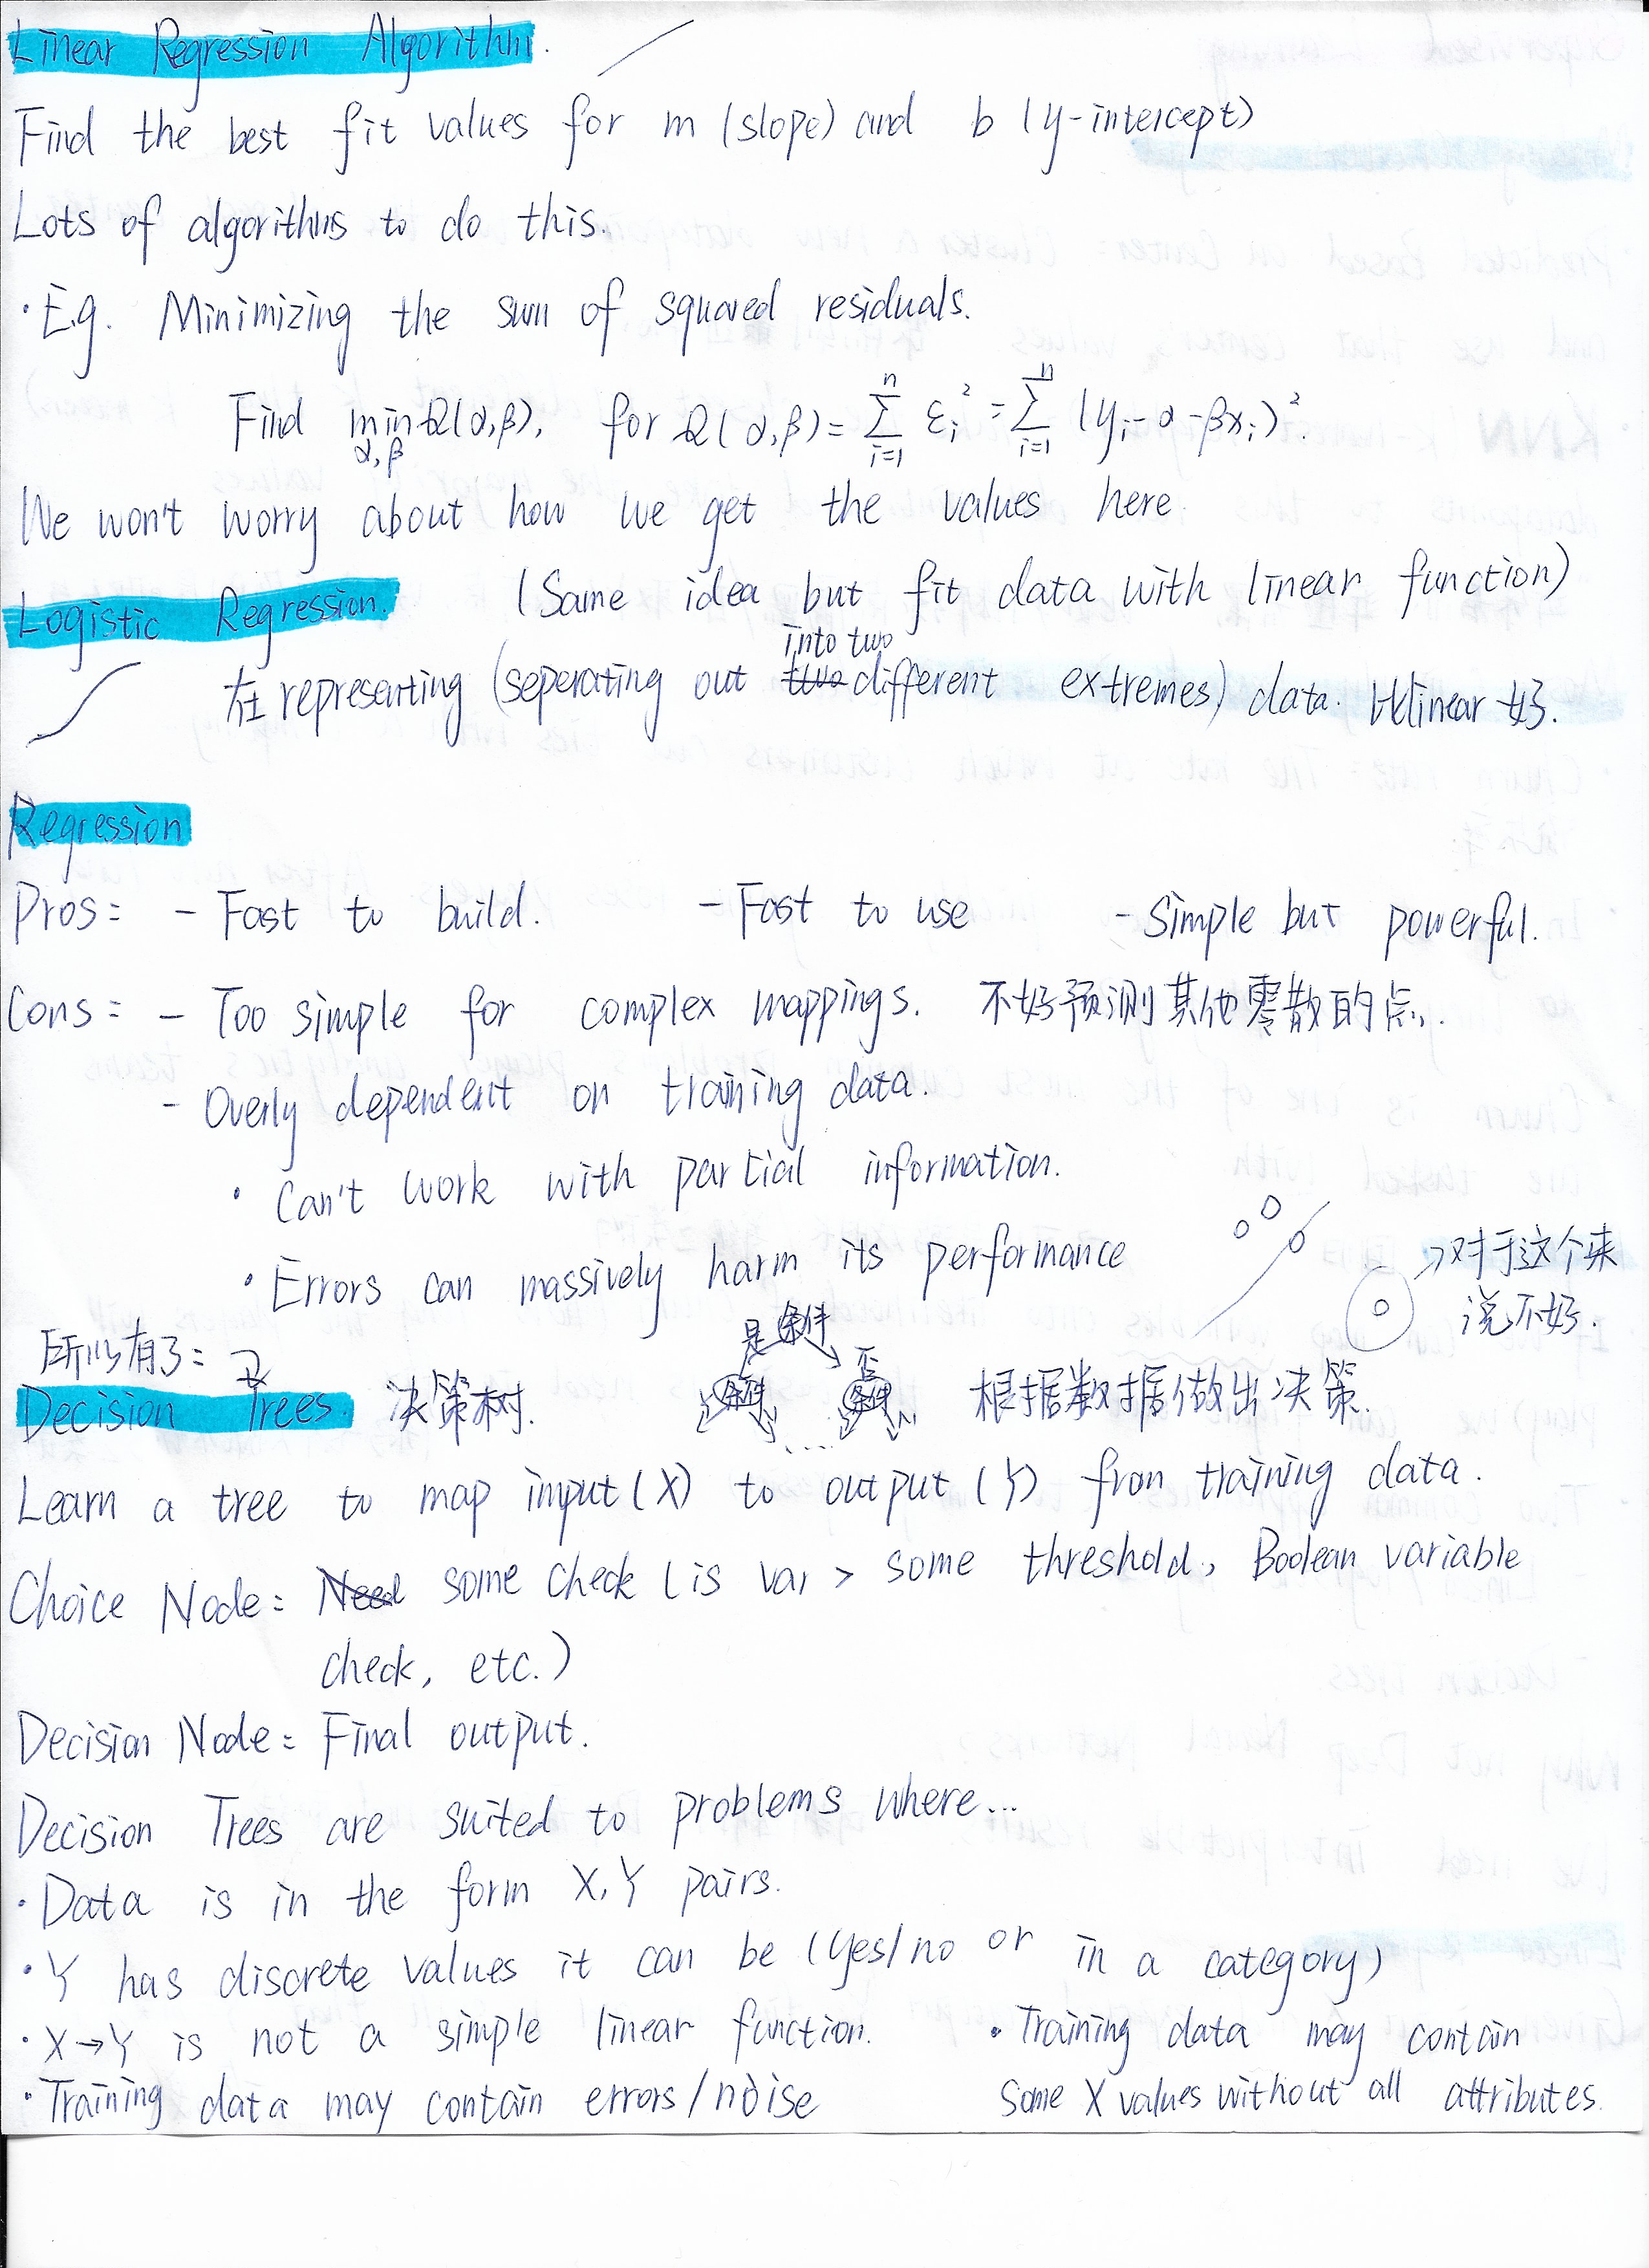 Linear Regression Algorithm.
Find the best fit values for m (slope) and b (y-intercept)
Lots of algorithms to do this.
· E.g. Minimizing the sum of squared residuals.
Find min α,β Q(α,β), for Q(α,β) = Σ i=1 n εi² = Σ i=1 n (yi - α - βxi)².
We won't worry about how we get the values here
Logistic Regression. (Same idea but fit data with linear function)
在 representing (seperating out into two different extremes) data. 比linear好.
Regression
Pros: - Fast to build. - Fast to use - Simple but powerful.
Cons: - Too simple for complex mappings. 不好预测其他零散的点.
- Overly dependent on training data.
· Can't work with partial information.
· Errors can massively harm its performance
→对于这个来
说不好.
所以有了:
是 条件 否
Decision Trees. 决策树. 条件 条件 根据数据做出决策.
....
Learn a tree to map input (X) to output (Y) from training data.
Choice Node: Need some check (is var > some threshold, Boolean variable
check, etc.)
Decision Node: Final output.
Decision Trees are suited to problems where...
· Data is in the form X,Y pairs.
· Y has discrete values it can be (yes/no or in a category)
· X→Y is not a simple linear function.
· Training data may contain errors/noise
· Training data may contain
some X values without all attributes.